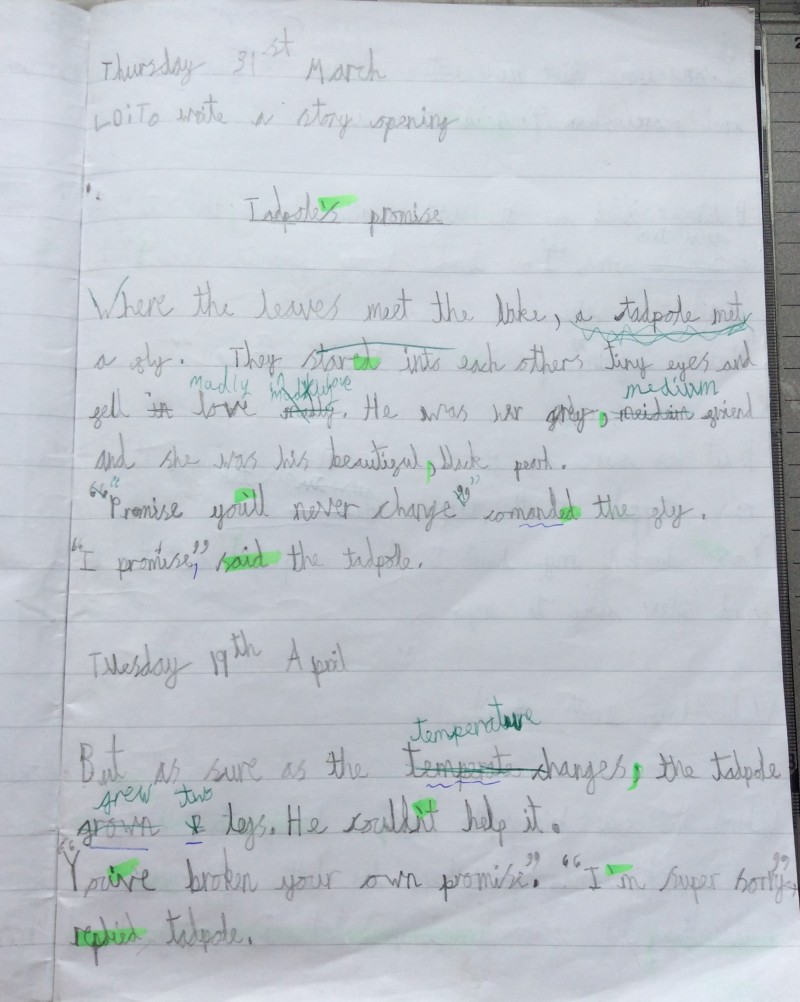 Thursday 31st March
LO: To write a story opening
Tadpole's promise
Where the leaves meet the lake, a tadpole met
a fly. They stared into each others tiny eyes and
madly in love medium
fell in love madly. He was her grey, friend
and she was his beautiful, black pearl.
"Promise you'll never change" comanded the fly.
"I promise," said the tadpole.
Tuesday 19th April
temperature
But as sure as the temperate changes, the tadpole
grew two
grown 2 legs. He couldn't help it.
"You've broken your own promise." "I'm super sorry"
replied tadpole.